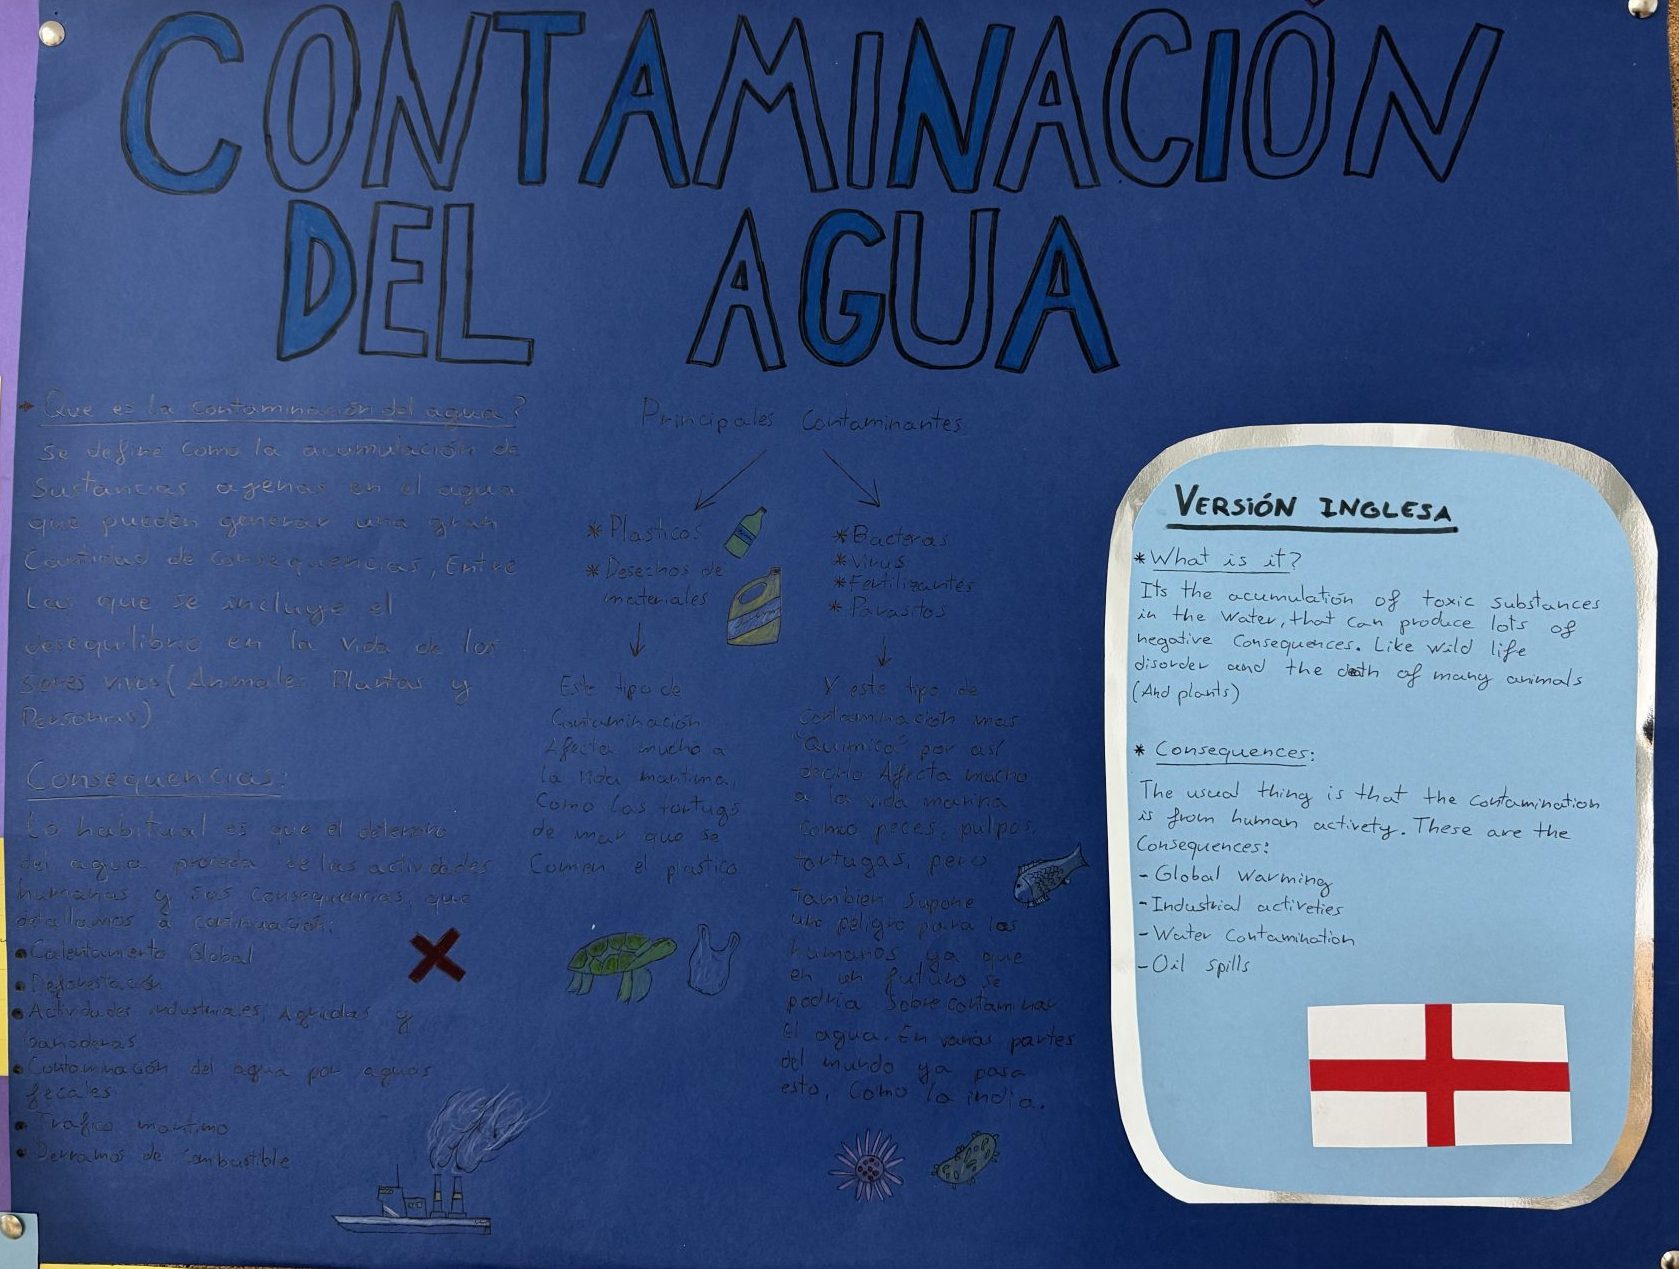 CONTAMINACIÓN
DEL AGUA
Que es la contaminación del agua?
Se define como la acumulación de
Sustancias agenas en el agua
que pueden generar una gran
Cantidad de consequencias, Entre
Las que se incluye el
desequilibrio en la vida de los
seres vivos (Animales Plantas y
Personas)
Consequencias:
Lo habitual es que el deterioro
del agua proceda de las actividades
humanas y sus consequencias, que
detallamos a continuación:
• Calentamiento Global
• Deforestación
• Actividades industriales, Agricolas y
ganaderas
• Contaminación del agua por aguas
fecales
• Trafico maritimo
• Derramos de combustible
Principales Contaminantes
* Plasticos
* Desechos de
materiales
Este tipo de
Contaminación
Afecta mucho a
la vida maritima,
Como las tortugs
de mar que se
Comen el plastico
* Bacteras
* Virus
* Fertilizantes
* Parasitos
Y este tipo de
contaminación mas
"Quimica" por así
decirlo Afecta mucho
a la vida marina
como peces, pulpos,
tortugas, pero
tambien supone
un peligro para los
humanos ya que
en un futuro se
podria sobrecontaminar
El agua. En varias partes
del mundo ya pasa
esto, Como la india.
VERSIÓN INGLESA
* What is it?
Its the acumulation of toxic substances
in the water, that can produce lots of
negative Consequences. Like wild life
disorder and the death of many animals
(And plants)
* Consequences:
The usual thing is that the contamination
is from human activety. These are the
Consequences:
- Global Warming
- Industrial activeties
- Water Contamination
- Oil spills